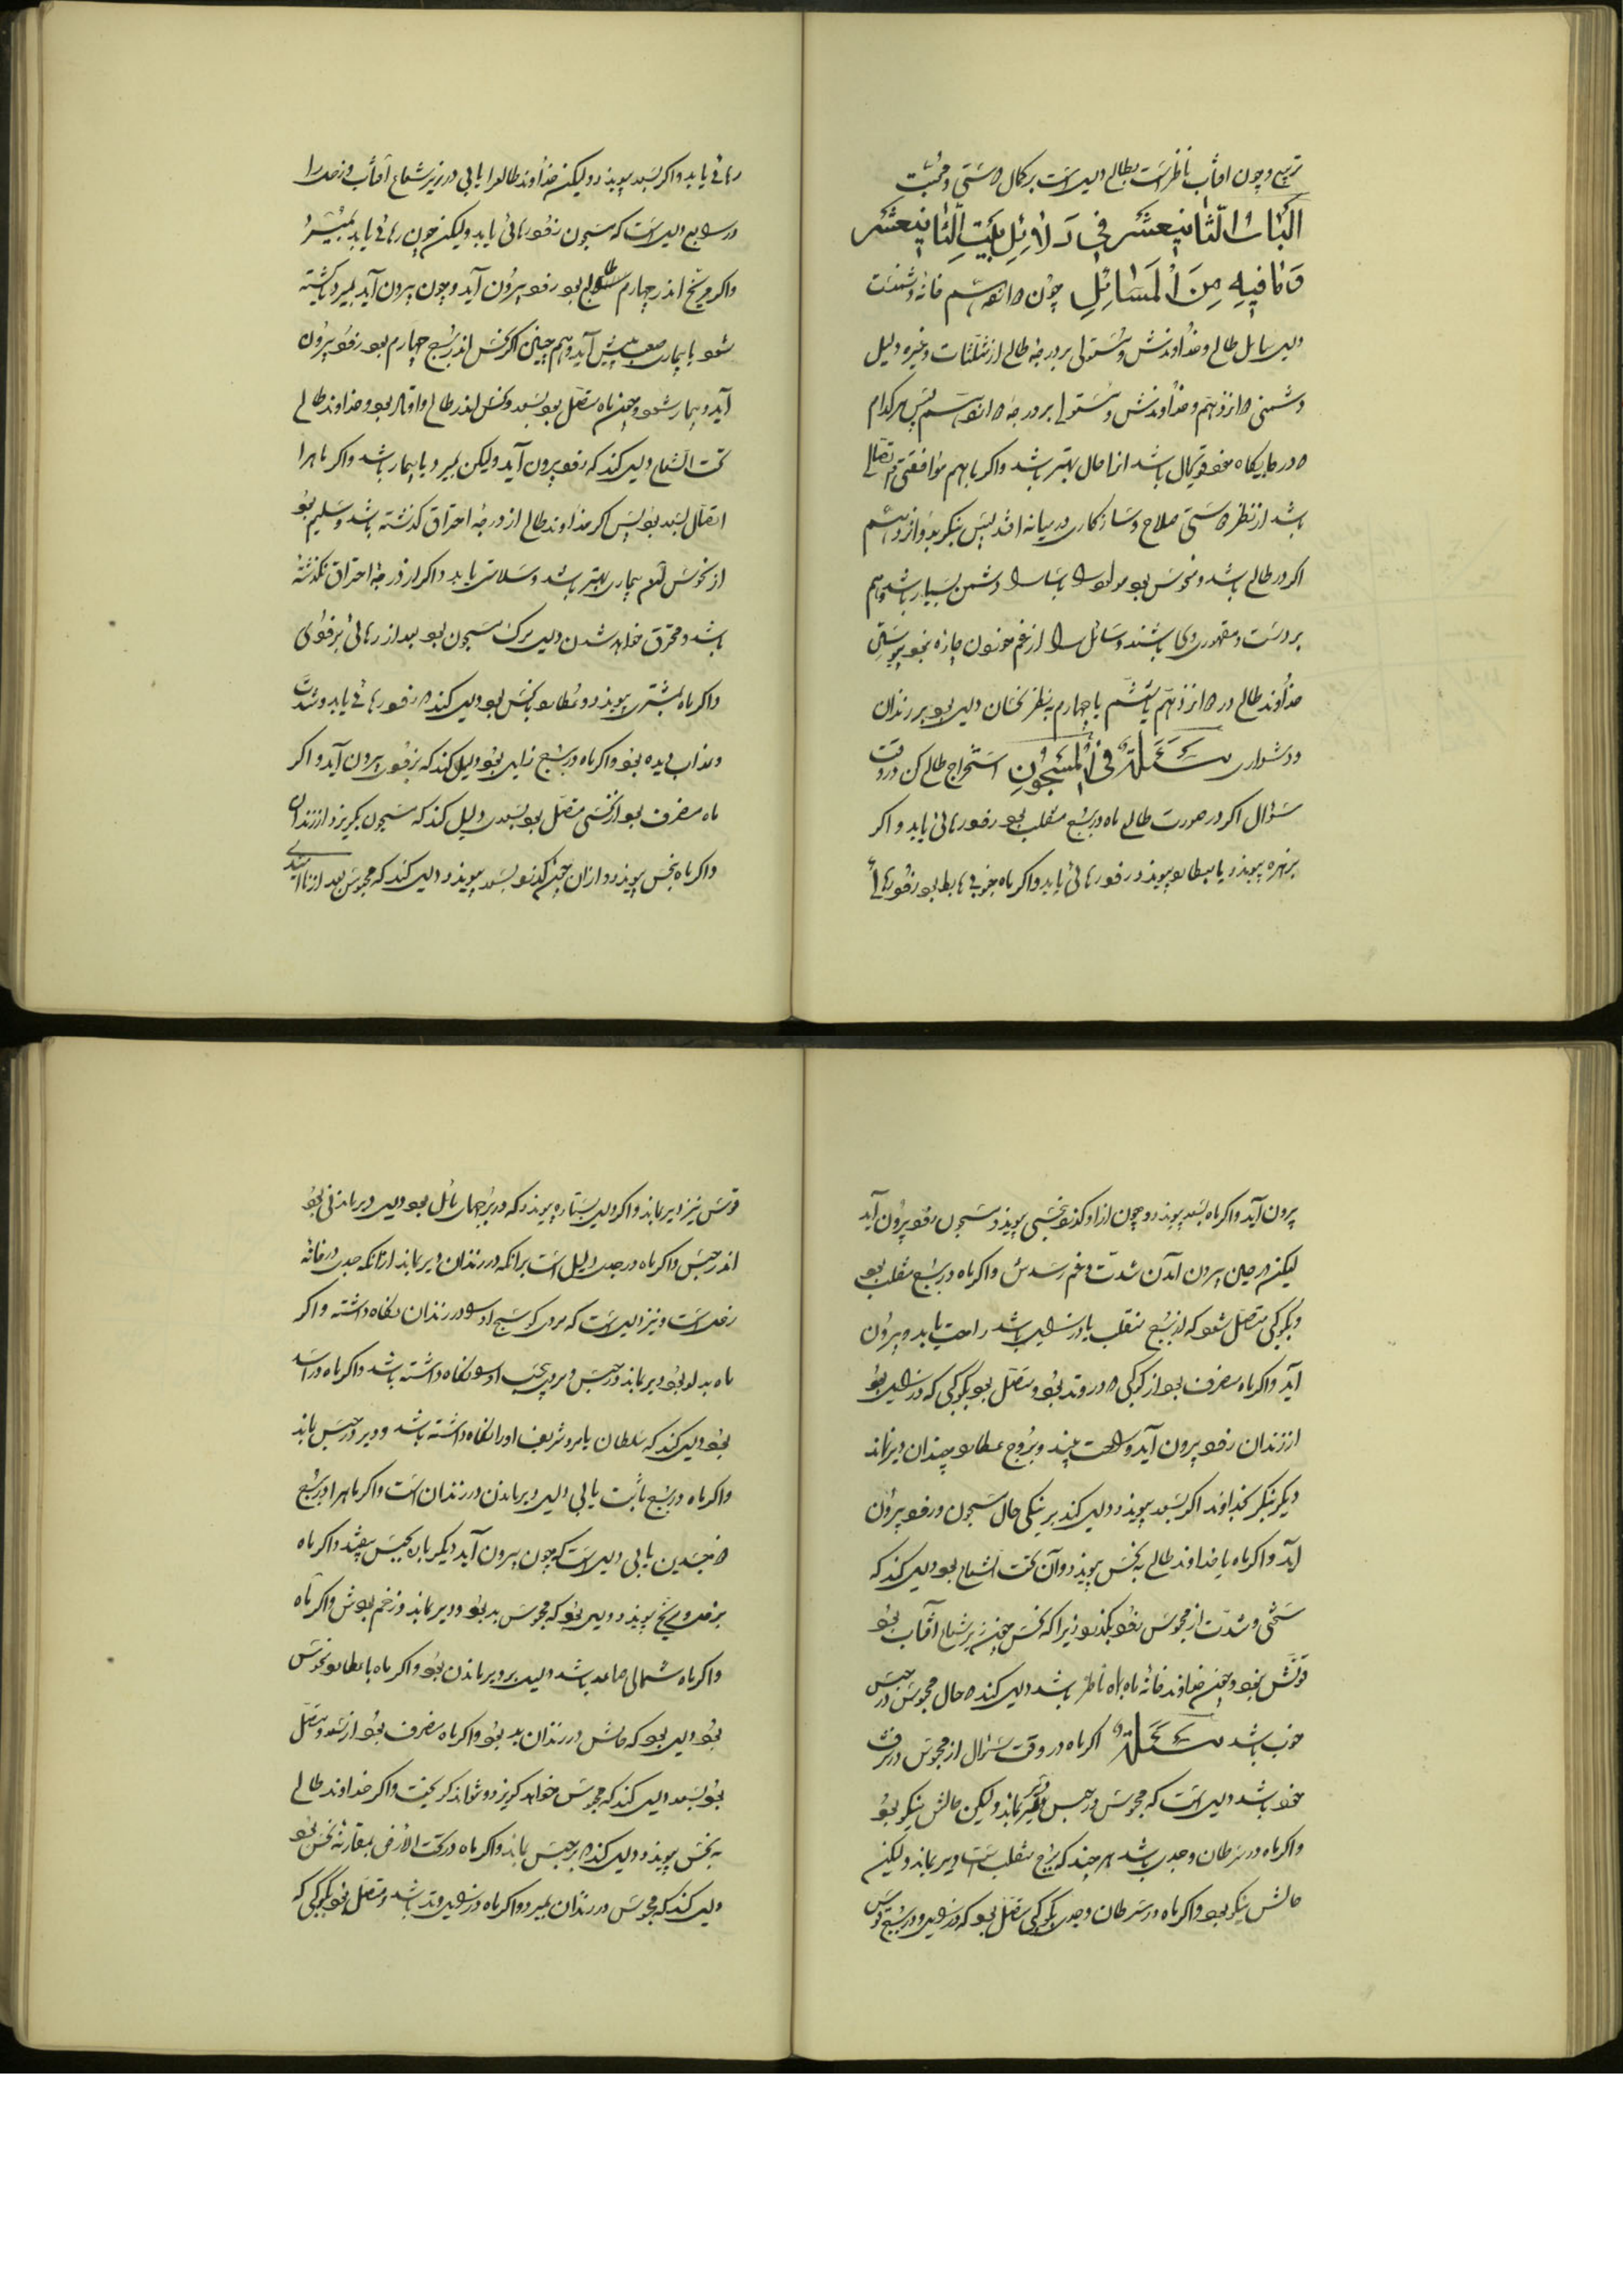 تربیع و چون افتاب ناظرست بطالع دلیلست بر کمال دوستی و محبت
الباب الثانیعشر فی دلائل بیت الثانیعشر
وما فیه من المسائل چون دوازدهم خانه دشمنست
دلیل سایل طالع و خداوندش و مستولی بر درجهٔ طالع از مثلثات و غیره دلیل
دشمنی دوازدهم و خداوندش و مستولی بر درجهٔ دوازدهم پس هر کدام
در جایگاه خود قویحال باشد انرا حال بهتر باشد و اکر با هم موافقتی و اتصالی
باشد از نظر دوستی صلاح و سازکاری در میانه افتد پس بنکرید خداوند دوازدهم
اکر در طالع باشد و منحوس بود مولود را یا سایل را دشمن بسیار باشد و هم
بر دست و مقهور وی باشند و سائل را از غم خوردن چاره نبود
خداوند طالع در دوازدهم یا ششم یا چهارم بنظر نحسان دلیل بود بر زندان
و دشواری مسئلة فی المسجون استخراج طالع کن در وقت
سؤال اکر در صورت طالع ماه در برج منقلب بود زود رهائی یابد و اکر
بزهره پیوندد یا بعطارد پیوندد زود رهائی یابد و اکر ماه جنوبی هابط بود زود رهائی
رهائی یابد و اکر بسعد پیوندد ولیکن خداوند طالع را یابی در زیر شعاع آفتاب و زحل را
در سابع دلیلست که مسجون زود رهائی یابد ولیکن چون رهائی یابد بمیرد
و اکر مریخ اندر چهارم طالع بود زود بیرون آید و چون بیرون آید بمیرد یا کشته
شود یا بیماری صعب پیش آید و هم چنین اکر نحس اندر برج چهارم بود زود بیرون
آید و بیمار شود و چون ماه متصل بود بسعد و نحس اندر طالع واقع بود و خداوند طالع
تحت الشعاع دلیل کند که زود بیرون آید ولیکن بمیرد یا بیمار باشد و اکر ماه را
اتصال بسعد بود پس اکر خداوند طالع از درجهٔ احتراق کذشته باشد و سلیم بود
از نحوس بیماری بهتر باشد و سلامتی یابد و اکر از درجهٔ احتراق نکذشته
باشد و محترق خواهد شدن دلیل مرک مسجون بود بعد از رهائی بزودی
و اکر ماه بمشتری پیوندد و عطارد بنحس بود دلیل کند که زود رهائی یابد و شدت
و عذاب دیده بود و اکر ماه در برج زایل بود دلیل کند که بزودی بیرون آید و اکر
ماه منصرف بود از نحسی متصل بود بسعدی دلیل کند که مسجون بکریزد از زندان
و اکر ماه بنحس پیوندد و از ان چون کذرد بسعد پیوندد دلیل کند که محبوس بعد از ناامیدی
بیرون آید و اکر ماه بسعد پیوندد و چون از او کذرد بنحسی پیوندد مسجون زود بیرون آید
لیکن در حین بیرون آمدن شدت و غم رسدش و اکر ماه در برج منقلب بود
و بکوکبی متصل شود که از برج منقلب یا در زایل باشد راحت یابد و بیرون
آید و اکر ماه منصرف بود از کوکبی که در وتد بود و متصل بود بکوکبی که در زایل بود
از زندان زود بیرون آید و راحت بیند و بروج عطارد چندان دیر نماند
دیکر بنکر بخداوند اکر بسعد پیوندد دلیل کند بر نیکی حال مسجون و زود بیرون
آید و اکر ماه یا خداوند طالع به نحس پیوندد و آن تحت الشعاع بود دلیل کند که
سختی و شدت از محبوس زود بکذرد زیرا که نحس چون زیر شعاع آفتاب بود
قوتش نبود و چون خداوند خانهٔ ماه بماه ناظر باشد دلیل کند که حال محبوس در حبس
خوب باشد مسئلة اکر ماه در وقت سؤال از محبوس در شرف
خود باشد دلیلست که محبوس در حبس دیر بماند ولیکن حالش نیکو بود
و اکر ماه در سرطان و جدی باشد هر چند که برج منقلب است دیر بماند ولیکن
حالش نیکو بود و اکر ماه در سرطان و جدی بکوکبی متصل بود که در زایل و در برج قوس
قوس نیز دیر بماند و اکر دلیل بستاره پیوندد که در برجهای مائل بود دلیل دیر ماندنی بود
اندر حبس و اکر ماه در جدی دلیل است بر انکه در زندان دیر بماند از انکه جدی در خانهٔ
زحلست و نیز دلیلست که مردی کوسج او را در زندان نکاه داشته و اکر
ماه بدلو بود دیر بماند در حبس و مردی او را نکاه داشته باشد و اکر ماه در اسد
بود دلیل کند که سلطان یا مرد شریف او را نکاه داشته باشد و دیر در حبس بماند
و اکر ماه در برج ثابت یابی دلیل دیر ماندن در زندان است و اکر ماه را در برج
ذو جسدین یابی دلیلست که چون بیرون آید دیکر باره بحبس بیفتد و اکر ماه
بزحل و مریخ پیوندد دلیل بود که محبوس بد بود و دیر بماند و زخم بودش و اکر ماه
و اکر ماه شمالی صاعد باشد دلیل بر دیر ماندن بود و اکر ماه با عطارد منحوس
بود دلیل بود که حالش در زندان بد بود و اکر ماه منصرف بود از سعد و متصل
بود بسعد دلیل کند که محبوس خواهد کریزد و نتواند کریخت و اکر خداوند طالع
به نحس پیوندد دلیل کند که در حبس بماند و اکر ماه در تحت الارض بمقارنه نحس بود
دلیل کند که محبوس در زندان بمیرد و اکر ماه در زایل وتد باشد و متصل بود بکوکبی که